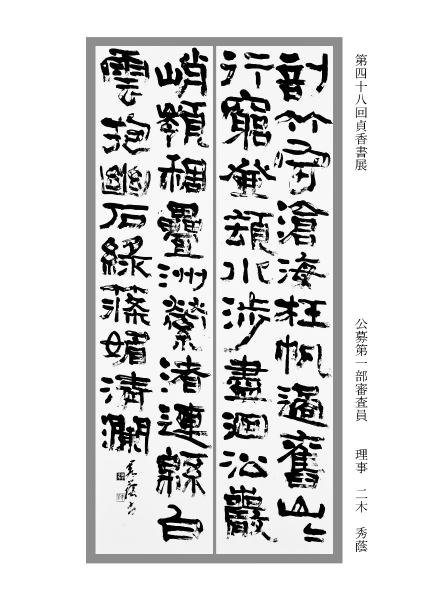 第四十八回貞香書展
公募第一部審査員　理事　二木　秀蔭
剖竹守滄海枉帆過舊山〻
行窮登頓水涉盡迴沿巖
峭嶺稠疊洲縈渚連緜白
雲抱幽石綠篠媚清漣
秀蔭書